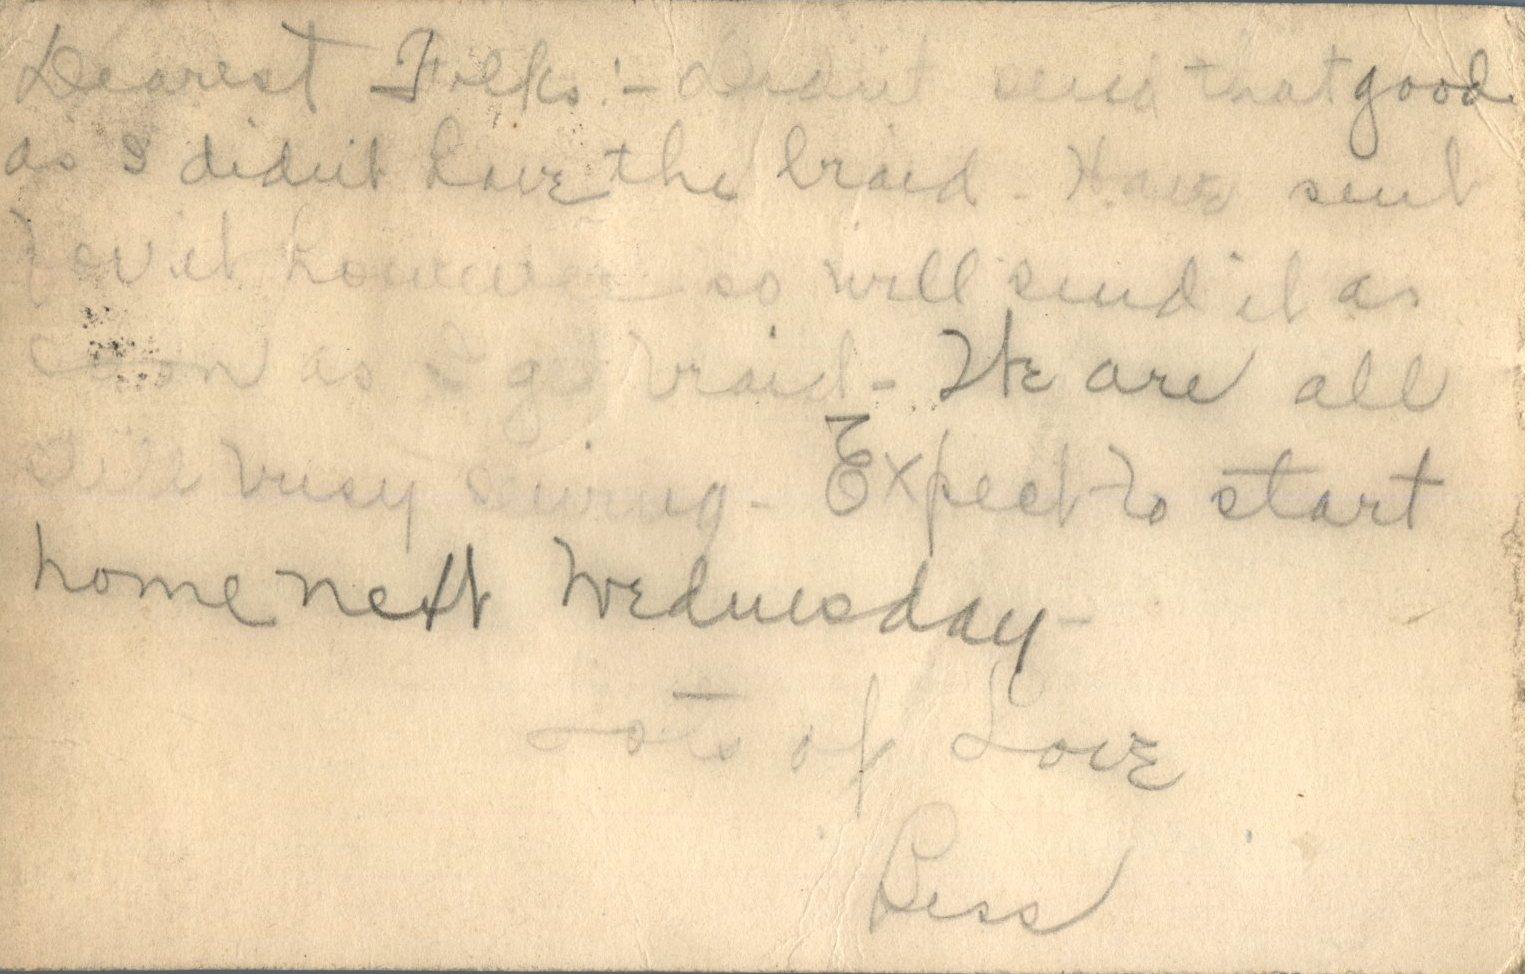 Dearest Folks:- Didn't send that good
as I didn't have the braid - Have sent
for it however so will send it as
soon as I get braid - We are all
still busy sewing - Expect to start
home next Wednesday -
Lots of Love
Bess